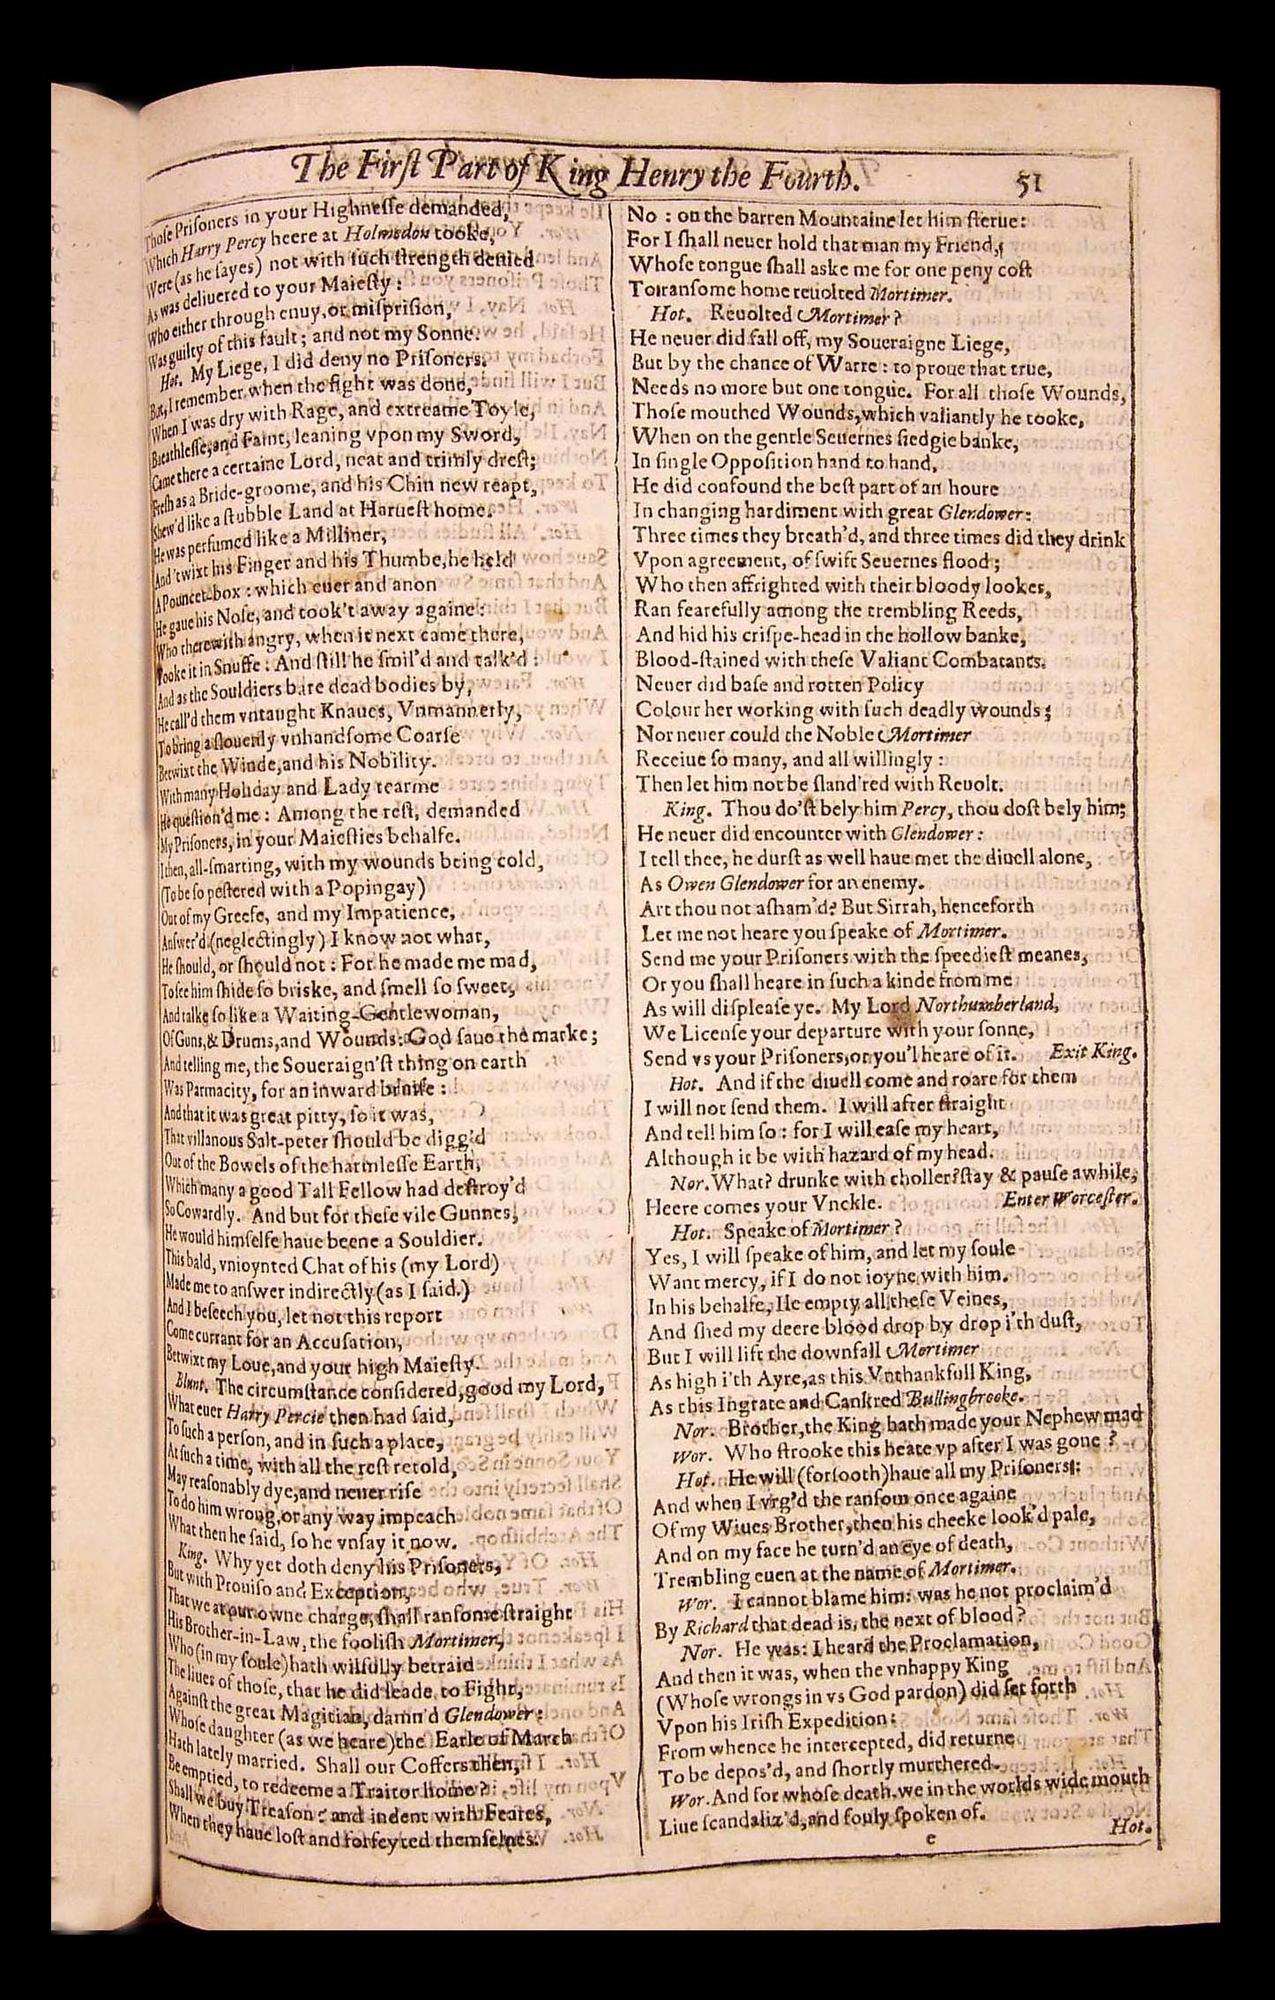 The Firſt Part of King Henry the Fourth. 51
Thoſe Priſoners in your Highneſſe demanded,
Which Harry Percy heere at Holmedon tooke,
Were (as he ſayes) not with ſuch ſtrength denied
As was deliuered to your Maieſty:
Who either through enuy, or miſpriſion,
Was guilty of this fault; and not my Sonne.
Hot. My Liege, I did deny no Priſoners.
But, I remember when the fight was done,
When I was dry with Rage, and extreame Toyle,
Breathleſſe, and Faint, leaning vpon my Sword,
Came there a certaine Lord, neat and trimly dreſt;
Freſh as a Bride-groome, and his Chin new reapt,
Shew'd like a ſtubble Land at Harueſt home.
He was perfumed like a Milliner,
And 'twixt his Finger and his Thumbe, he held
A Pouncet-box: which euer and anon
He gaue his Noſe, and took't away againe:
Who therewith angry, when it next came there,
Tooke it in Snuffe: And ſtill he ſmil'd and talk'd:
And as the Souldiers bare dead bodies by,
He call'd them vntaught Knaues, Vnmannerly,
To bring a ſlouenly vnhandſome Coarſe
Betwixt the Winde, and his Nobility.
With many Holiday and Lady tearme
He queſtion'd me: Among the reſt, demanded
My Priſoners, in your Maieſties behalfe.
I then, all-ſmarting, with my wounds being cold,
(To be ſo peſtered with a Popingay)
Out of my Greefe, and my Impatience,
Anſwer'd (neglectingly) I know not what,
He ſhould, or ſhould not: For he made me mad,
To ſee him ſhide ſo briske, and ſmell ſo ſweet,
And talke ſo like a Waiting-Gentlewoman,
Of Guns, & Drums, and Wounds: God ſaue the marke;
And telling me, the Soueraign'ſt thing on earth
Was Parmacity, for an inward bruiſe:
And that it was great pitty, ſo it was,
That villanous Salt-peter ſhould be digg'd
Out of the Bowels of the harmleſſe Earth,
Which many a good Tall Fellow had deſtroy'd
So Cowardly. And but for theſe vile Gunnes,
He would himſelfe haue beene a Souldier.
This bald, vnioynted Chat of his (my Lord)
Made me to anſwer indirectly (as I ſaid.)
And I beſeech you, let not this report
Come currant for an Accuſation,
Betwixt my Loue, and your high Maieſty.
Blunt. The circumſtance conſidered, good my Lord,
What euer Harry Percie then had ſaid,
To ſuch a perſon, and in ſuch a place,
At ſuch a time, with all the reſt retold,
May reaſonably dye, and neuer riſe
To do him wrong, or any way impeach
What then he ſaid, ſo he vnſay it now.
King. Why yet doth deny his Priſoners,
But with Prouiſo and Exception,
That we at our owne charge, ſhall ranſome ſtraight
His Brother-in-Law, the fooliſh Mortimer,
Who (in my ſoule) hath wilfully betraid
The liues of thoſe, that he did leade to Fight,
Againſt the great Magitian, damn'd Glendower:
Whoſe daughter (as we heare) the Earle of March
Hath lately married. Shall our Coffers then,
Be emptied, to redeeme a Traitor home?
Shall we buy Treaſon? and indent with Feares,
When they haue loſt and forfeyted themſelues.
No: on the barren Mountaine let him ſterue:
For I ſhall neuer hold that man my Friend,
Whoſe tongue ſhall aske me for one peny coſt
To ranſome home reuolted Mortimer.
Hot. Reuolted Mortimer?
He neuer did fall off, my Soueraigne Liege,
But by the chance of Warre: to proue that true,
Needs no more but one tongue. For all thoſe Wounds,
Thoſe mouthed Wounds, which valiantly he tooke,
When on the gentle Seuernes ſiedgie banke,
In ſingle Oppoſition hand to hand,
He did confound the beſt part of an houre
In changing hardiment with great Glendower:
Three times they breath'd, and three times did they drink
Vpon agreement, of ſwift Seuernes flood;
Who then affrighted with their bloody lookes,
Ran fearefully among the trembling Reeds,
And hid his criſpe-head in the hollow banke,
Blood-ſtained with theſe Valiant Combatants.
Neuer did baſe and rotten Policy
Colour her working with ſuch deadly wounds;
Nor neuer could the Noble Mortimer
Receiue ſo many, and all willingly:
Then let him not be ſland'red with Reuolt.
King. Thou do'ſt bely him Percy, thou doſt bely him;
He neuer did encounter with Glendower:
I tell thee, he durſt as well haue met the diuell alone,
As Owen Glendower for an enemy.
Art thou not aſham'd? But Sirrah, henceforth
Let me not heare you ſpeake of Mortimer.
Send me your Priſoners with the ſpeedieſt meanes,
Or you ſhall heare in ſuch a kinde from me
As will diſpleaſe ye. My Lord Northumberland,
We Licenſe your departure with your ſonne,
Send vs your Priſoners, or you'l heare of it. Exit King.
Hot. And if the diuell come and roare for them
I will not ſend them. I will after ſtraight
And tell him ſo: for I will eaſe my heart,
Although it be with hazard of my head.
Nor. What? drunke with choller? ſtay & pauſe awhile,
Heere comes your Vnckle. Enter Worceſter.
Hot. Speake of Mortimer?
Yes, I will ſpeake of him, and let my ſoule
Want mercy, if I do not ioyne with him.
In his behalfe, Ile empty all theſe Veines,
And ſhed my deere blood drop by drop i'th duſt,
But I will lift the downfall Mortimer
As high i'th Ayre, as this Vnthankfull King,
As this Ingrate and Cankred Bullingbrooke.
Nor. Brother, the King hath made your Nephew mad
Wor. Who ſtrooke this heate vp after I was gone?
Hot. He will (forſooth) haue all my Priſoners:
And when I vrg'd the ranſom once againe
Of my Wiues Brother, then his cheeke look'd pale,
And on my face he turn'd an eye of death,
Trembling euen at the name of Mortimer.
Wor. I cannot blame him: was he not proclaim'd
By Richard that dead is, the next of blood?
Nor. He was: I heard the Proclamation,
And then it was, when the vnhappy King
(Whoſe wrongs in vs God pardon) did ſet forth
Vpon his Iriſh Expedition:
From whence he intercepted, did returne
To be depos'd, and ſhortly murthered.
Wor. And for whoſe death, we in the worlds wide mouth
Liue ſcandaliz'd, and fouly ſpoken of.
e Hot.